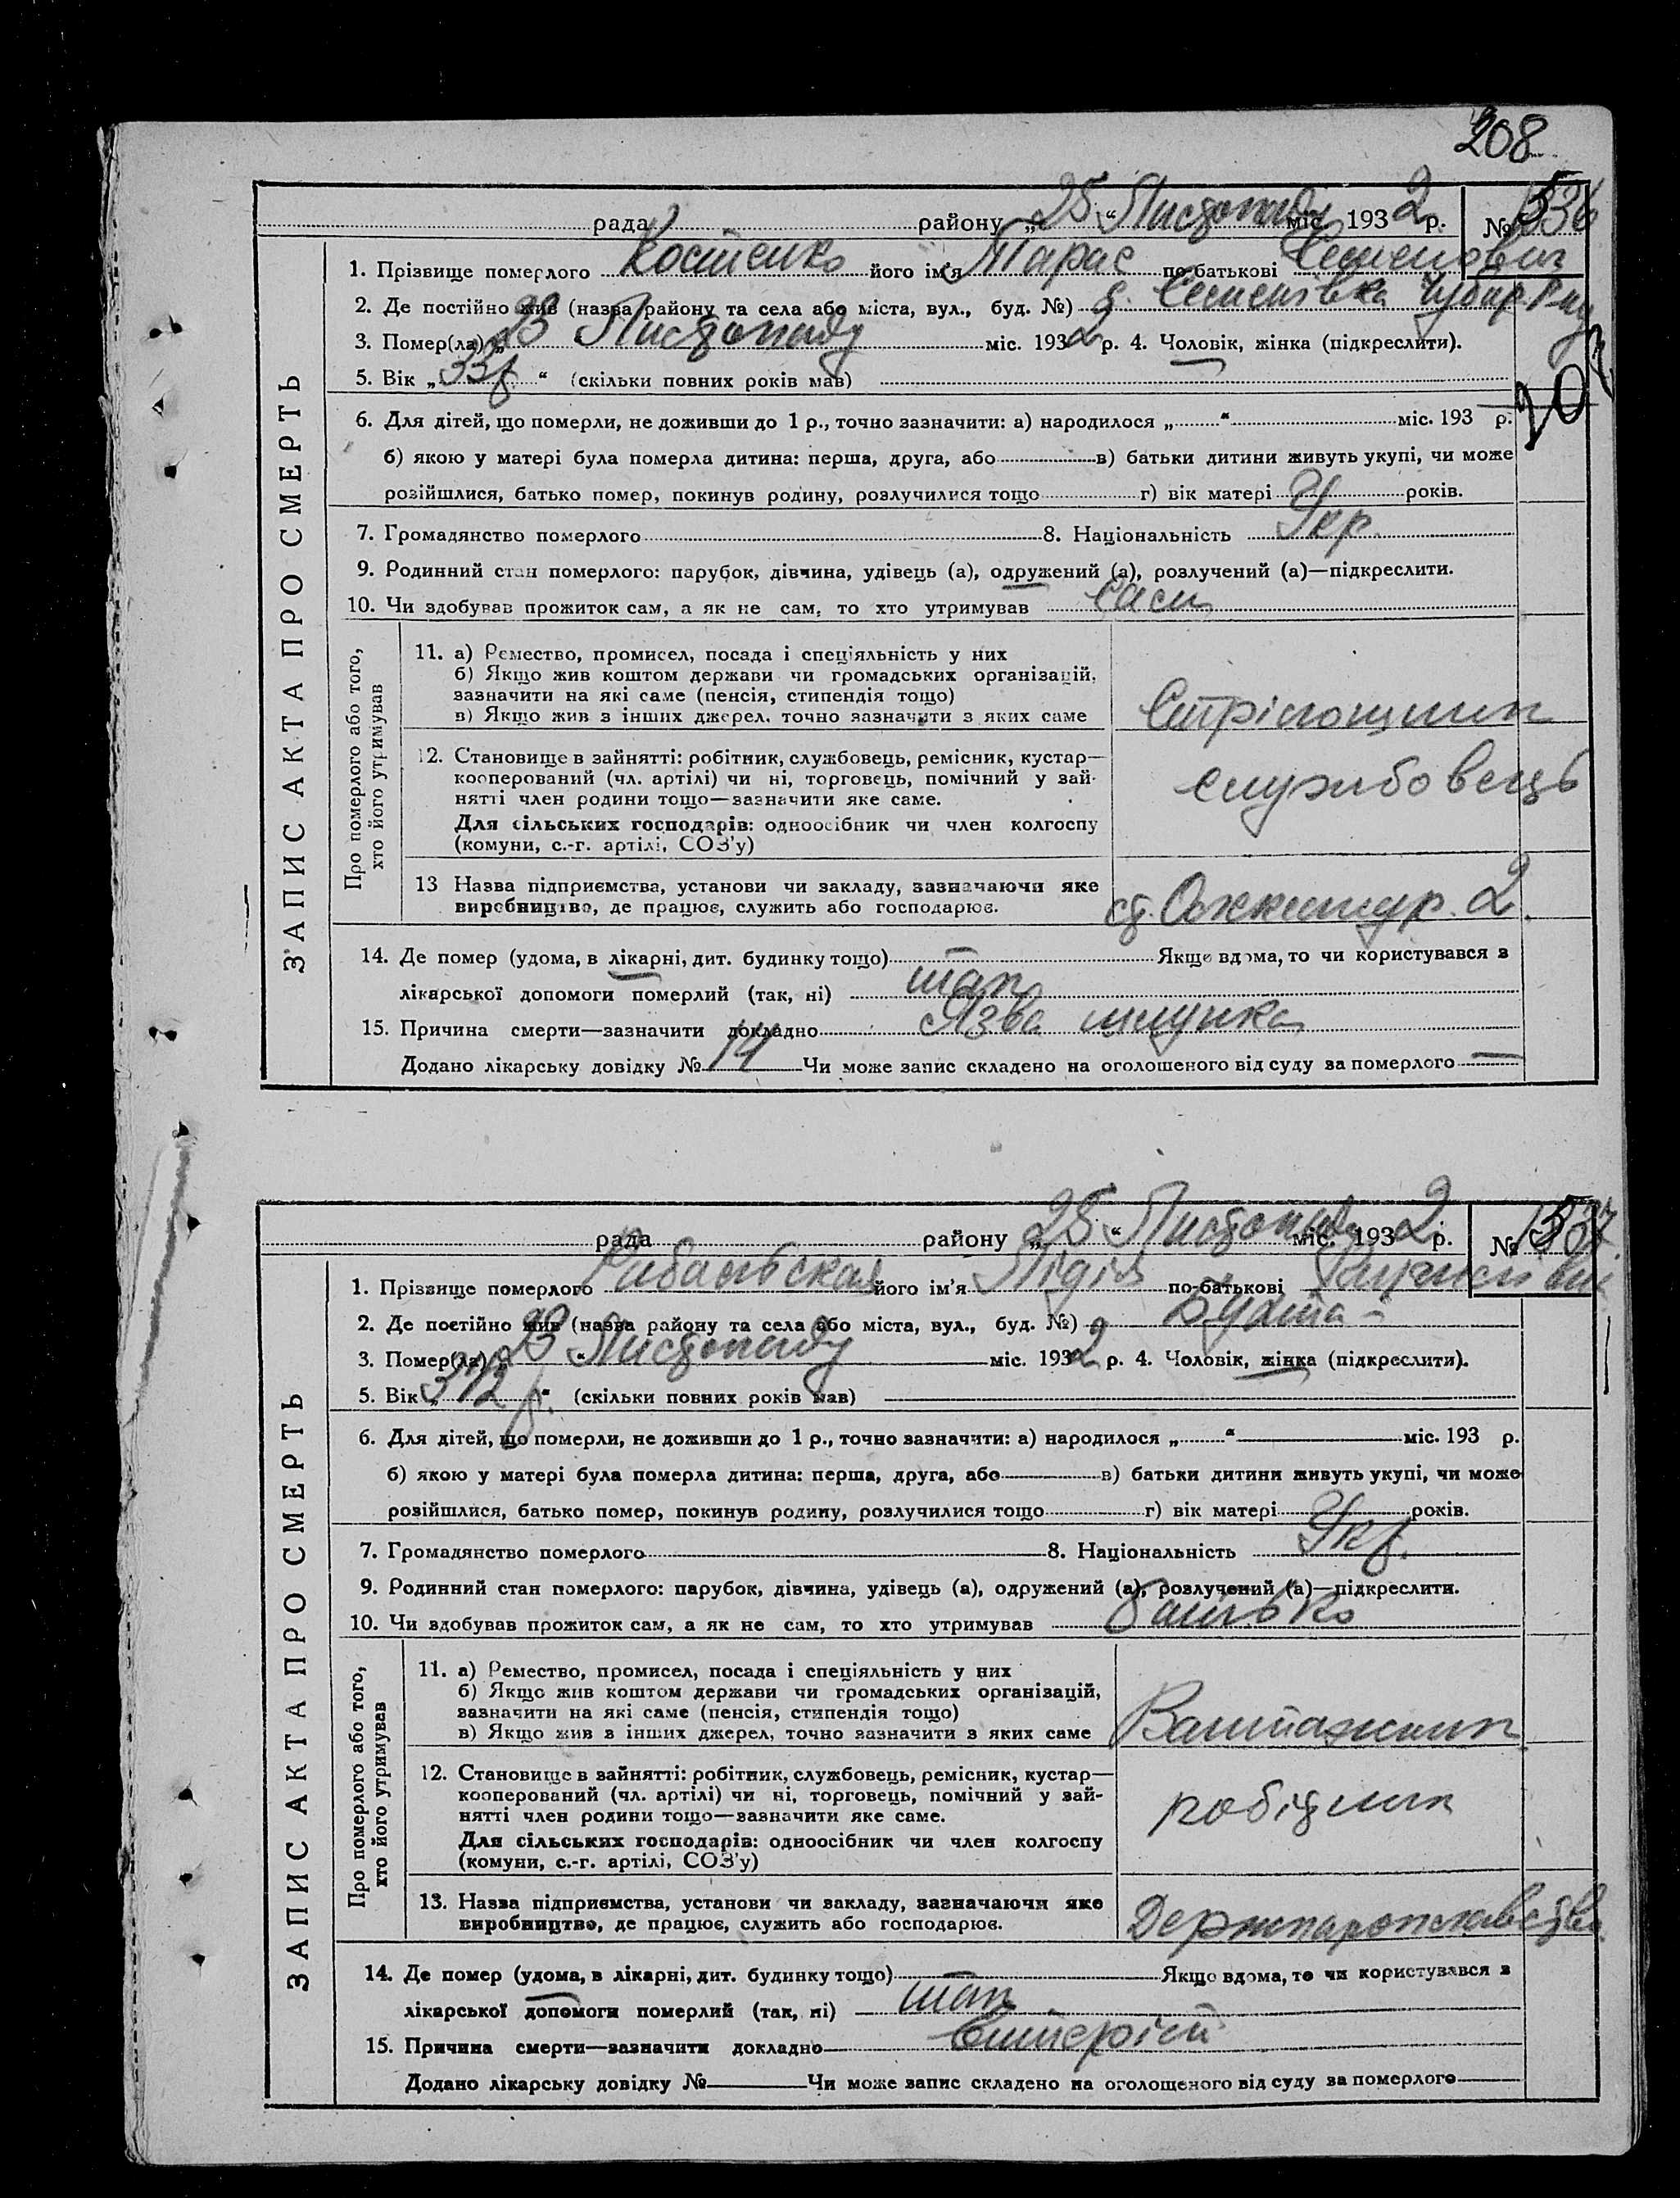 208
рада района „25“ Листопада міс. 1932 р. № 536
1. Прізвище померлого Костенко його ім'я Тарас по-батькові Семенович
2. Де постійно жив (назва району та села або міста, вул., буд. №) с. Семенівка Чубар. р-ну
3. Помер(ла) „23 Листопаду міс. 1932 р. 4. Чоловік, жінка (підкреслити).
5. Вік „33 р. “ (скільки повних років мав)
6. Для дітей, що померли, не доживши до 1 р., точно зазначити: а) народилося „ “ міс. 193 р.
б) якою у матері була померла дитина: перша, друга, або в) батьки дитини живуть укупі, чи може
розійшлися, батько помер, покинув родину, розлучилися тощо г) вік матері років.
7. Громадянство померлого 8. Національність Укр.
9. Родинний стан померлого: парубок, дівчина, удівець (а), одружений (а), розлучений (а)—підкреслити.
10. Чи здобував прожиток сам, а як не сам, то хто утримував сам
ЗАПИС АКТА ПРО СМЕРТЬ
Про померлого або того,
хто його утримував
11. а) Ремество, промисел, посада і спеціяльність у них
б) Якщо жив коштом держави чи громадських організацій,
зазначити на які саме (пенсія, стипендія тощо)
в) Якщо жив з інших джерел, точно зазначити з яких саме
12. Становище в зайнятті: робітник, службовець, ремісник, кустар—
кооперований (чл. артілі) чи ні, торговець, помічний у зай-
нятті член родини тощо—зазначити яке саме. службовець
Для сільських господарів: одноосібник чи член колгоспу
(комуни, с.-г. артілі, СОЗ'у)
13 Назва підприємства, установи чи закладу, зазначаючи яке
виробництво, де працює, служить або господарює. ст. 2.
14. Де помер (удома, в лікарні, дит. будинку тощо) Якщо вдома, то чи користувався з
лікарської допомоги померлий (так, ні) так
15. Причина смерти—зазначити докладно Язва шлунка
Додано лікарську довідку № 14 Чи може запис складено на оголошеного від суду за померлого —
рада району „25“ Листопада міс. 1932 р. № 537
1. Прізвище померлого Рибальская його ім'я Лідія по-батькові
2. Де постійно жив (назва району та села або міста, вул., буд. №) Бухта
3. Помер(ла) „23“ Листопаду міс. 1932 р. 4. Чоловік, жінка (підкреслити).
5. Вік „3 1/2 р. “ (скільки повних років мав)
6. Для дітей, що померли, не доживши до 1 р., точно зазначити: а) народилося „ “ міс. 193 р.
б) якою у матері була померла дитина: перша, друга, або в) батьки дитини живуть укупі, чи може
розійшлися, батько помер, покинув родину, розлучилися тощо г) вік матері років.
7. Громадянство померлого 8. Національність Укр.
9. Родинний стан померлого: парубок, дівчина, удівець (а), одружений (а), розлучений (а)—підкреслити.
10. Чи здобував прожиток сам, а як не сам, то хто утримував батько
ЗАПИС АКТА ПРО СМЕРТЬ
Про померлого або того,
хто його утримував
11. а) Ремество, промисел, посада і спеціяльність у них
б) Якщо жив коштом держави чи громадських організацій,
зазначити на які саме (пенсія, стипендія тощо)
в) Якщо жив з інших джерел, точно зазначити з яких саме Вантажник
12. Становище в зайнятті: робітник, службовець, ремісник, кустар—
кооперований (чл. артілі) чи ні, торговець, помічний у зай-
нятті член родини тощо—зазначити яке саме. робітник
Для сільських господарів: одноосібник чи член колгоспу
(комуни, с.-г. артілі, СОЗ'у)
13. Назва підприємства, установи чи закладу, зазначаючи яке
виробництво, де працює, служить або господарює. Держпароплавство
14. Де помер (удома, в лікарні, дит. будинку тощо) Якщо вдома, то чи користувався з
лікарської допомоги померлий (так, ні) так
15. Причина смерти—зазначити докладно
Додано лікарську довідку № Чи може запис складено на оголошеного від суду за померлого